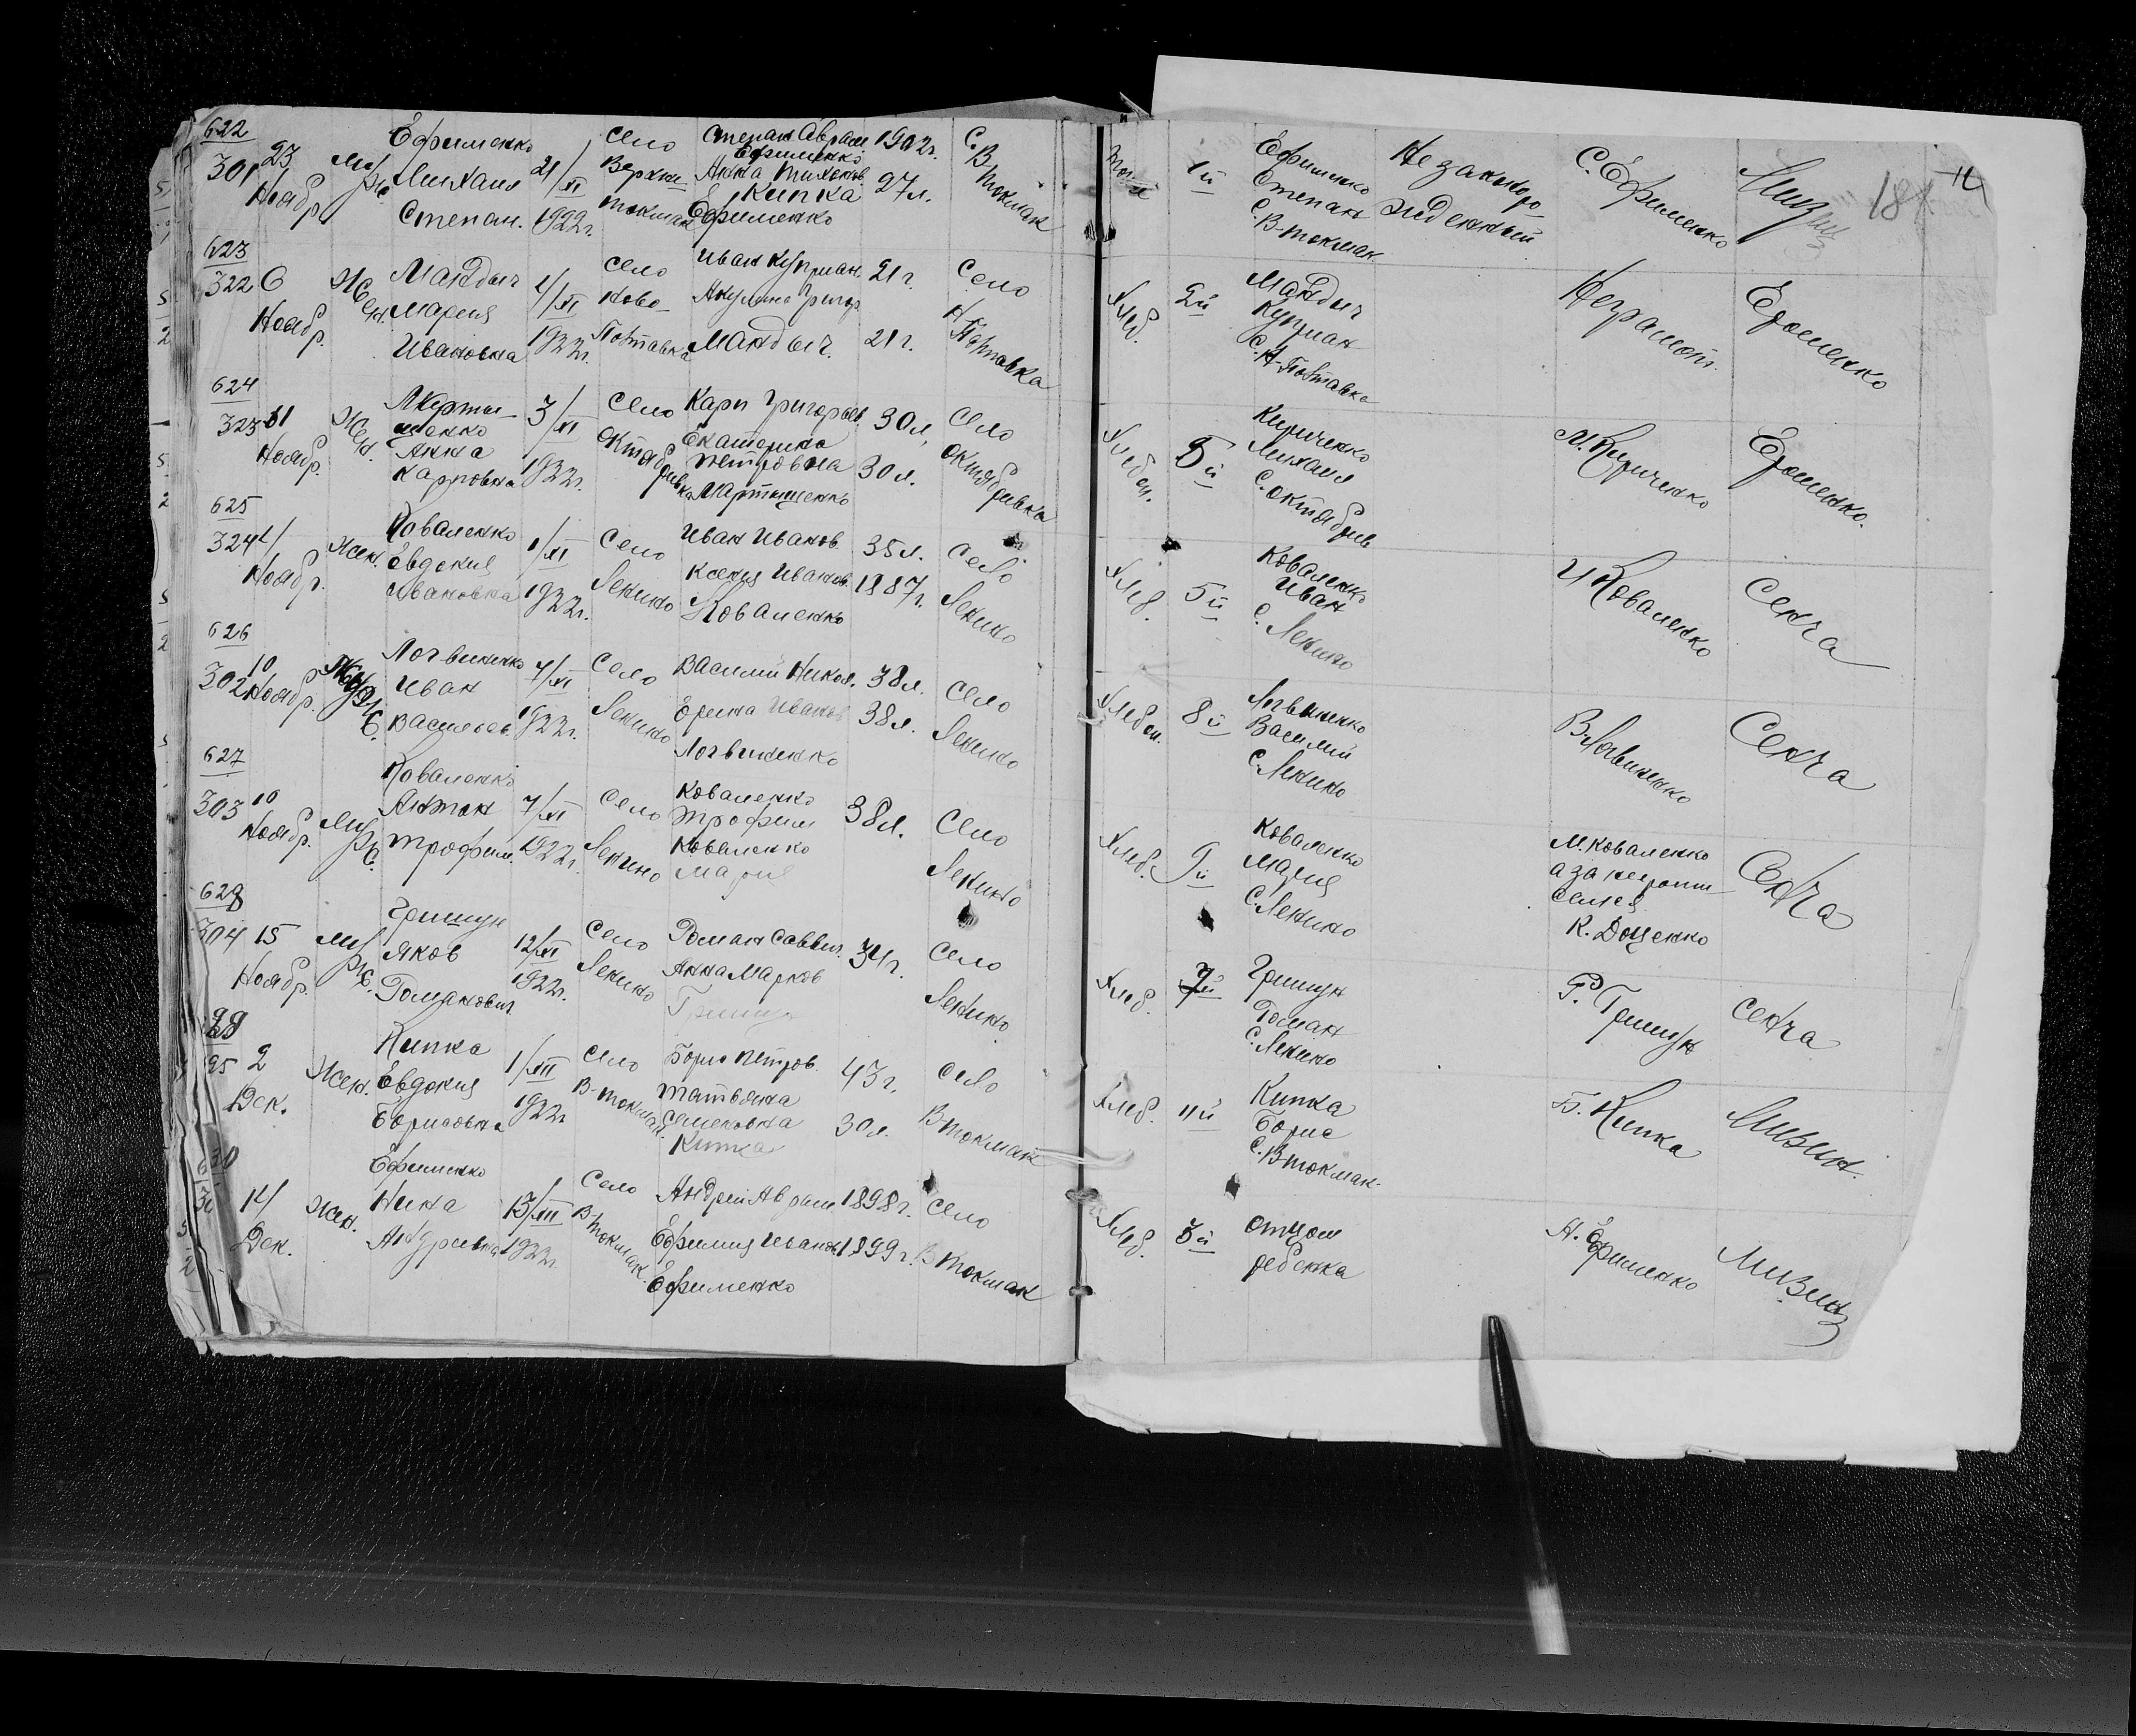 622
301 23 Ноябр. Муж. Ефименко Михаил Степан. 21/XI 1922г. село Верхни Токмак Степан Аврам Ефименко 1902г. Анна Тихонов Кипка Ефименко 27л. С. В Токмак
1й Ефименко Степан С. В-Токмак Незаконорожденный С. Ефименко
181
623
322 6 Ноябр. Жен. Мандыч Мария Ивановна 4/XI 1922г. село Ново-Полтавка Иван Куприан 21г. Акулина Григор Мандыч. 21г. село Н-Полтавка
Хлеб. 2й Мандыч Куприан С. Н-Полтавка Неграмотн. Ерошенко
624
323 Ноябр. Жен. Мартыщенко Анна Карповна 3/XI 1922г. Село Октябривка Карп Григорьев 30л, Екатерина Петровна Мартыщенко 30л. село Октябривка
Хлебоп. 5й Кириченко Михаил С. Октябрив М. Кириченко Ерошенко.
625
324 4/ Ноябр. Жен. Коваленко Евдокия Ивановна 1/XI 1922г. Село Лекино Иван Иванов 35л. Ксения Иванов. 1887г. Коваленко село Лекино
Хлеб. 5й Коваленко Иван С. Лекино И Коваленко Секча
626
302 10 Ноябр. Муж. Логвиненко Иван Васильев. 7/XI 1922г. Село Лекино Василий Никол. 38л. Ерина Иванов 38л. Логвиненко село Лекино
Хлебоп. 8й Логвиненко Василий С. Лекино Секча
627
303 10 Ноябр. Муж. Коваленко Антон Трофим. 7/XI 1922г. Село Лекино Коваленко Трофим 38л. Коваленко Мария Село Лекино
Хлеб. 9й Коваленко Мария С. Лекино М. Коваленко а за К. Доценко Секча
628
304 15 Ноябр. Муж. Гришун Яков Романович 12/XI 1922г. Село Лекино Роман Саввич. 34г. Анна Марков Гришун Село Лекино
Хлеб. 7й Гришун Роман С. Лекино Р. Гришун Секча
29
95 2 Дек. Жен. Кипка Евдокия Борисовна 1/XII 1922г Село В-Токмак Борис Петров. 43г. Татьяна Семеновна Кипка 30л. село В Токмак
Хлеб. 11й Кипка Борис С. В Токмак Б. Кипка Мизин.
630
14 Дек. Жен. Ефименко Нина Андреевна 13/XII 1922г. Село В-Токмак. Андрей Аврам 1898г. Ефимия Иванов 1899г. Ефименко село В Токмак
Хлеб. 3й Отцом ребенка А. Ефименко Мизин